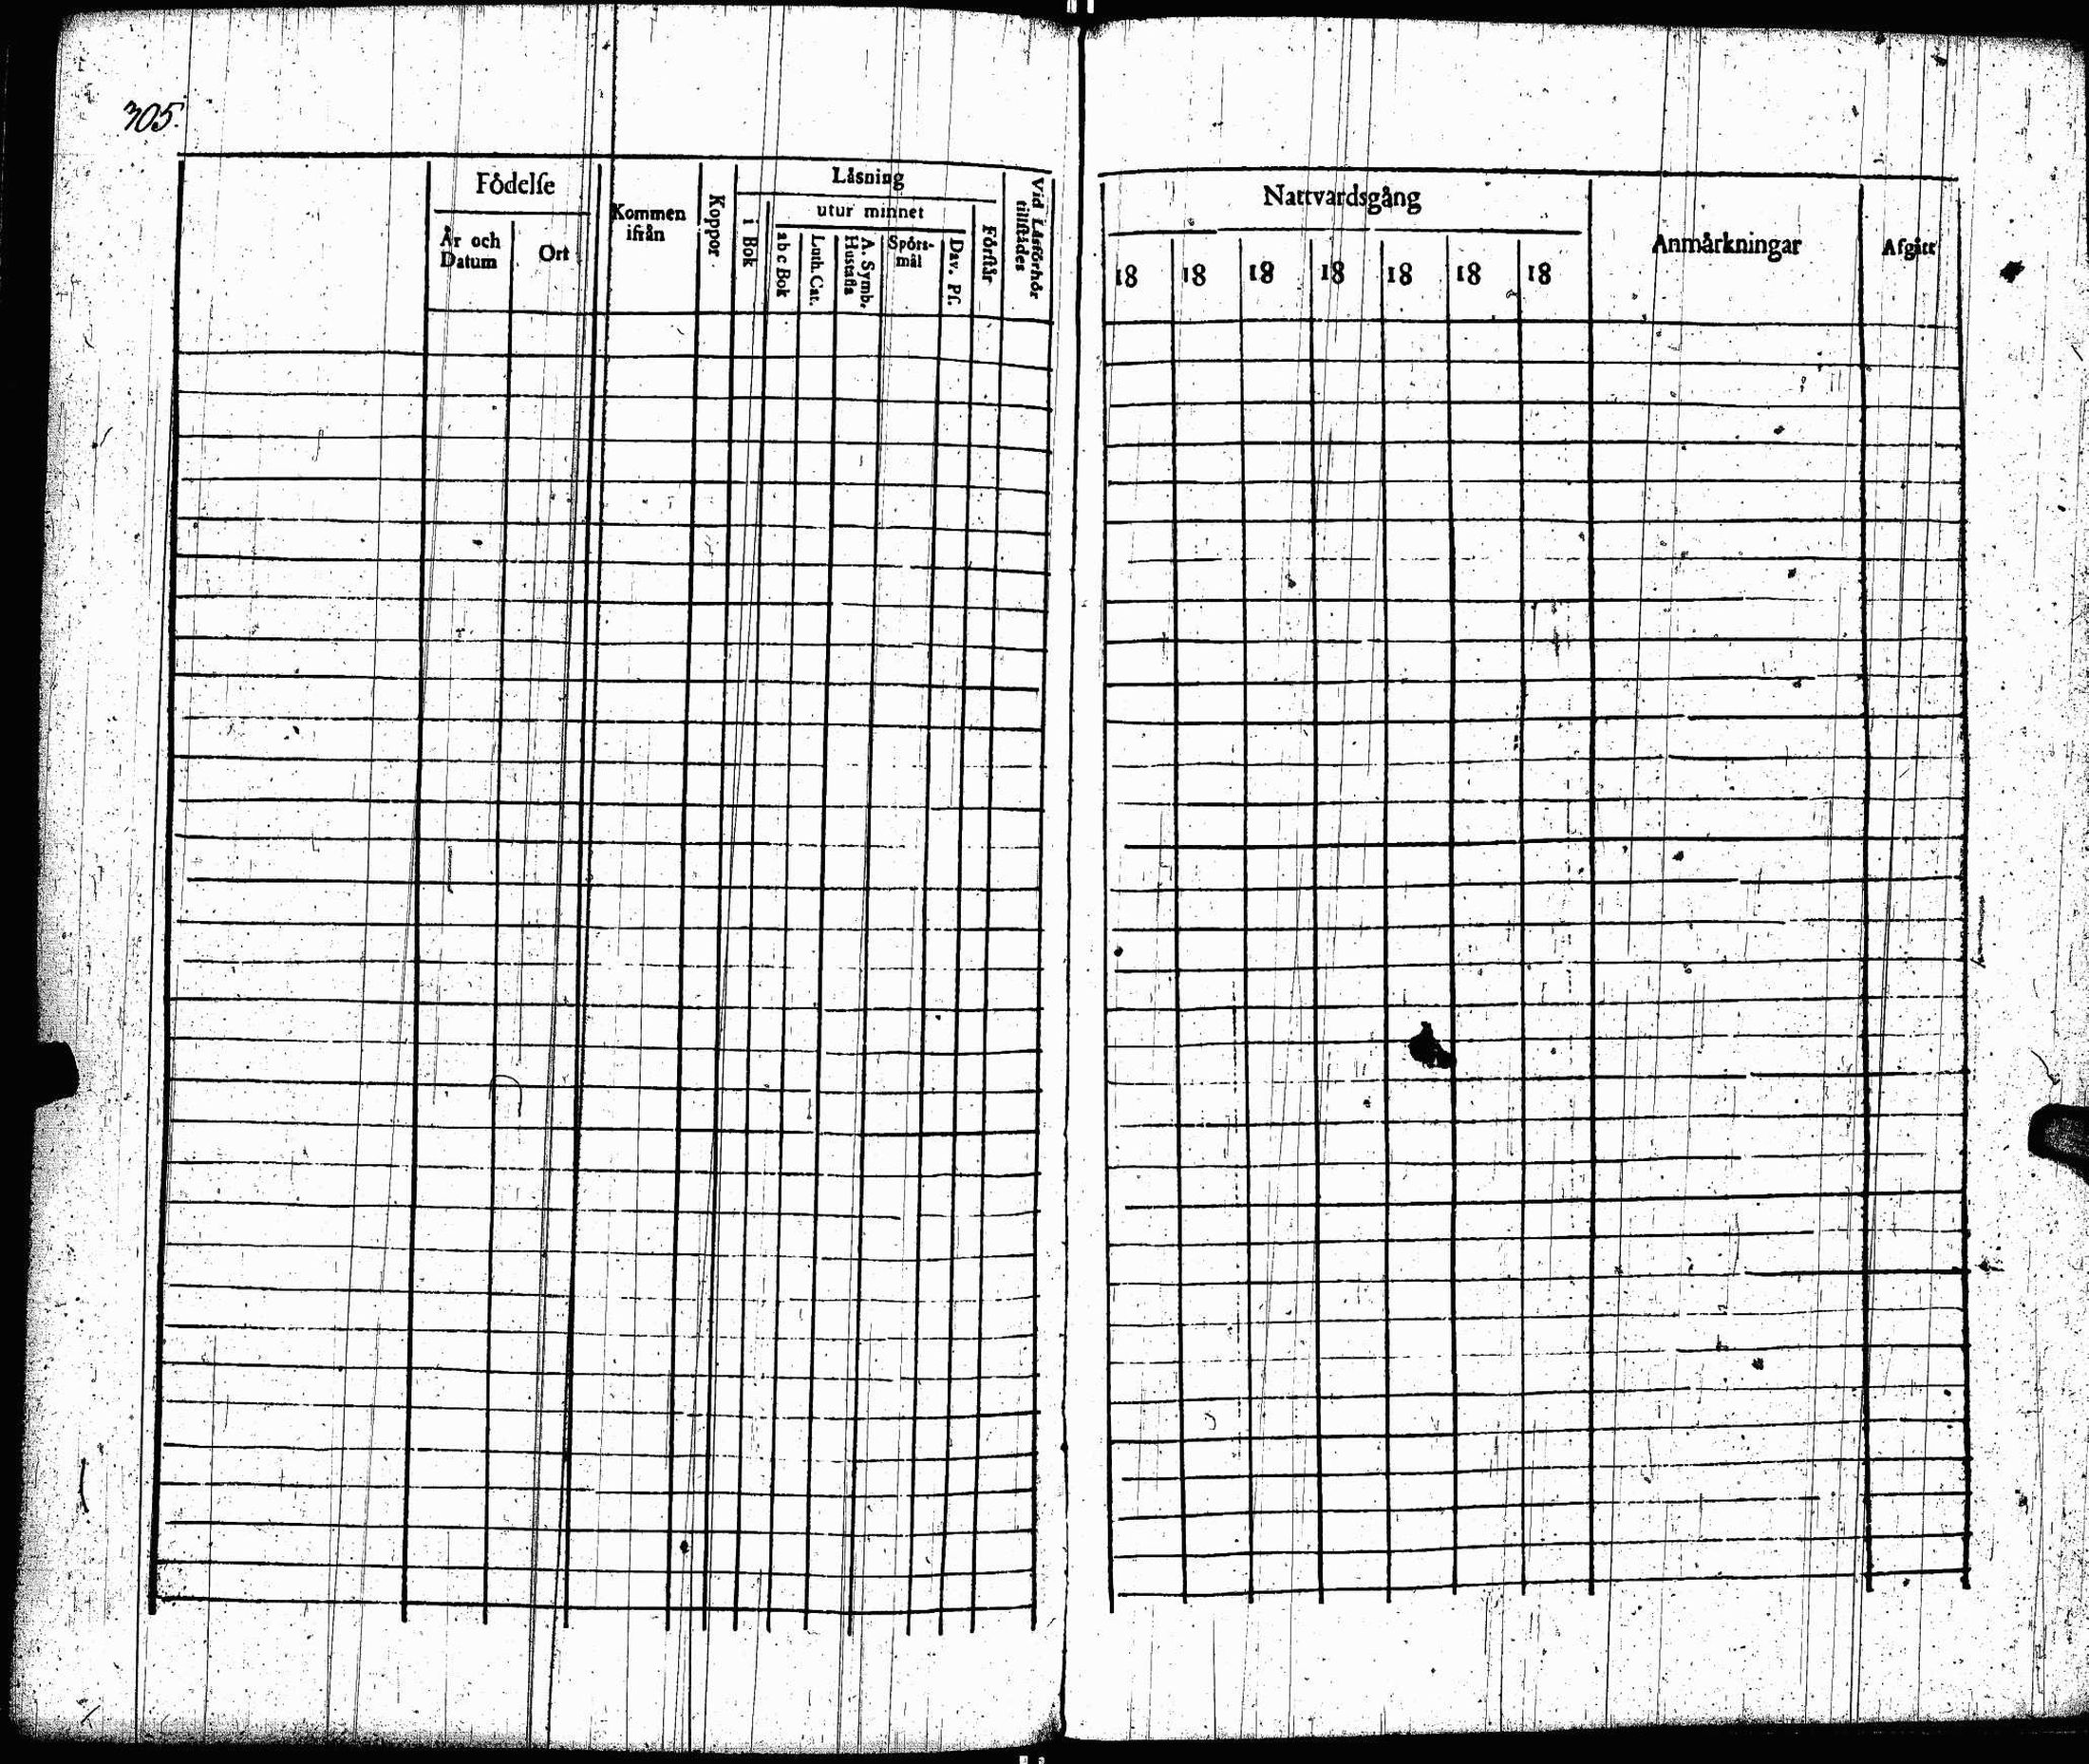 305.
Födelse
År och Datum
Ort
Kommen ifrån
Koppor.
Läsning
i Bok
utur minnet
a b c Bok
Luth. Cat.
A. Symb. Hustafla
Spörs-mål
Dav. Ps.
Förstår
Vid Läsförhör tillstädes
Nattvardsgång
18 18 18 18 18 18 18
Anmärkningar
Afgått